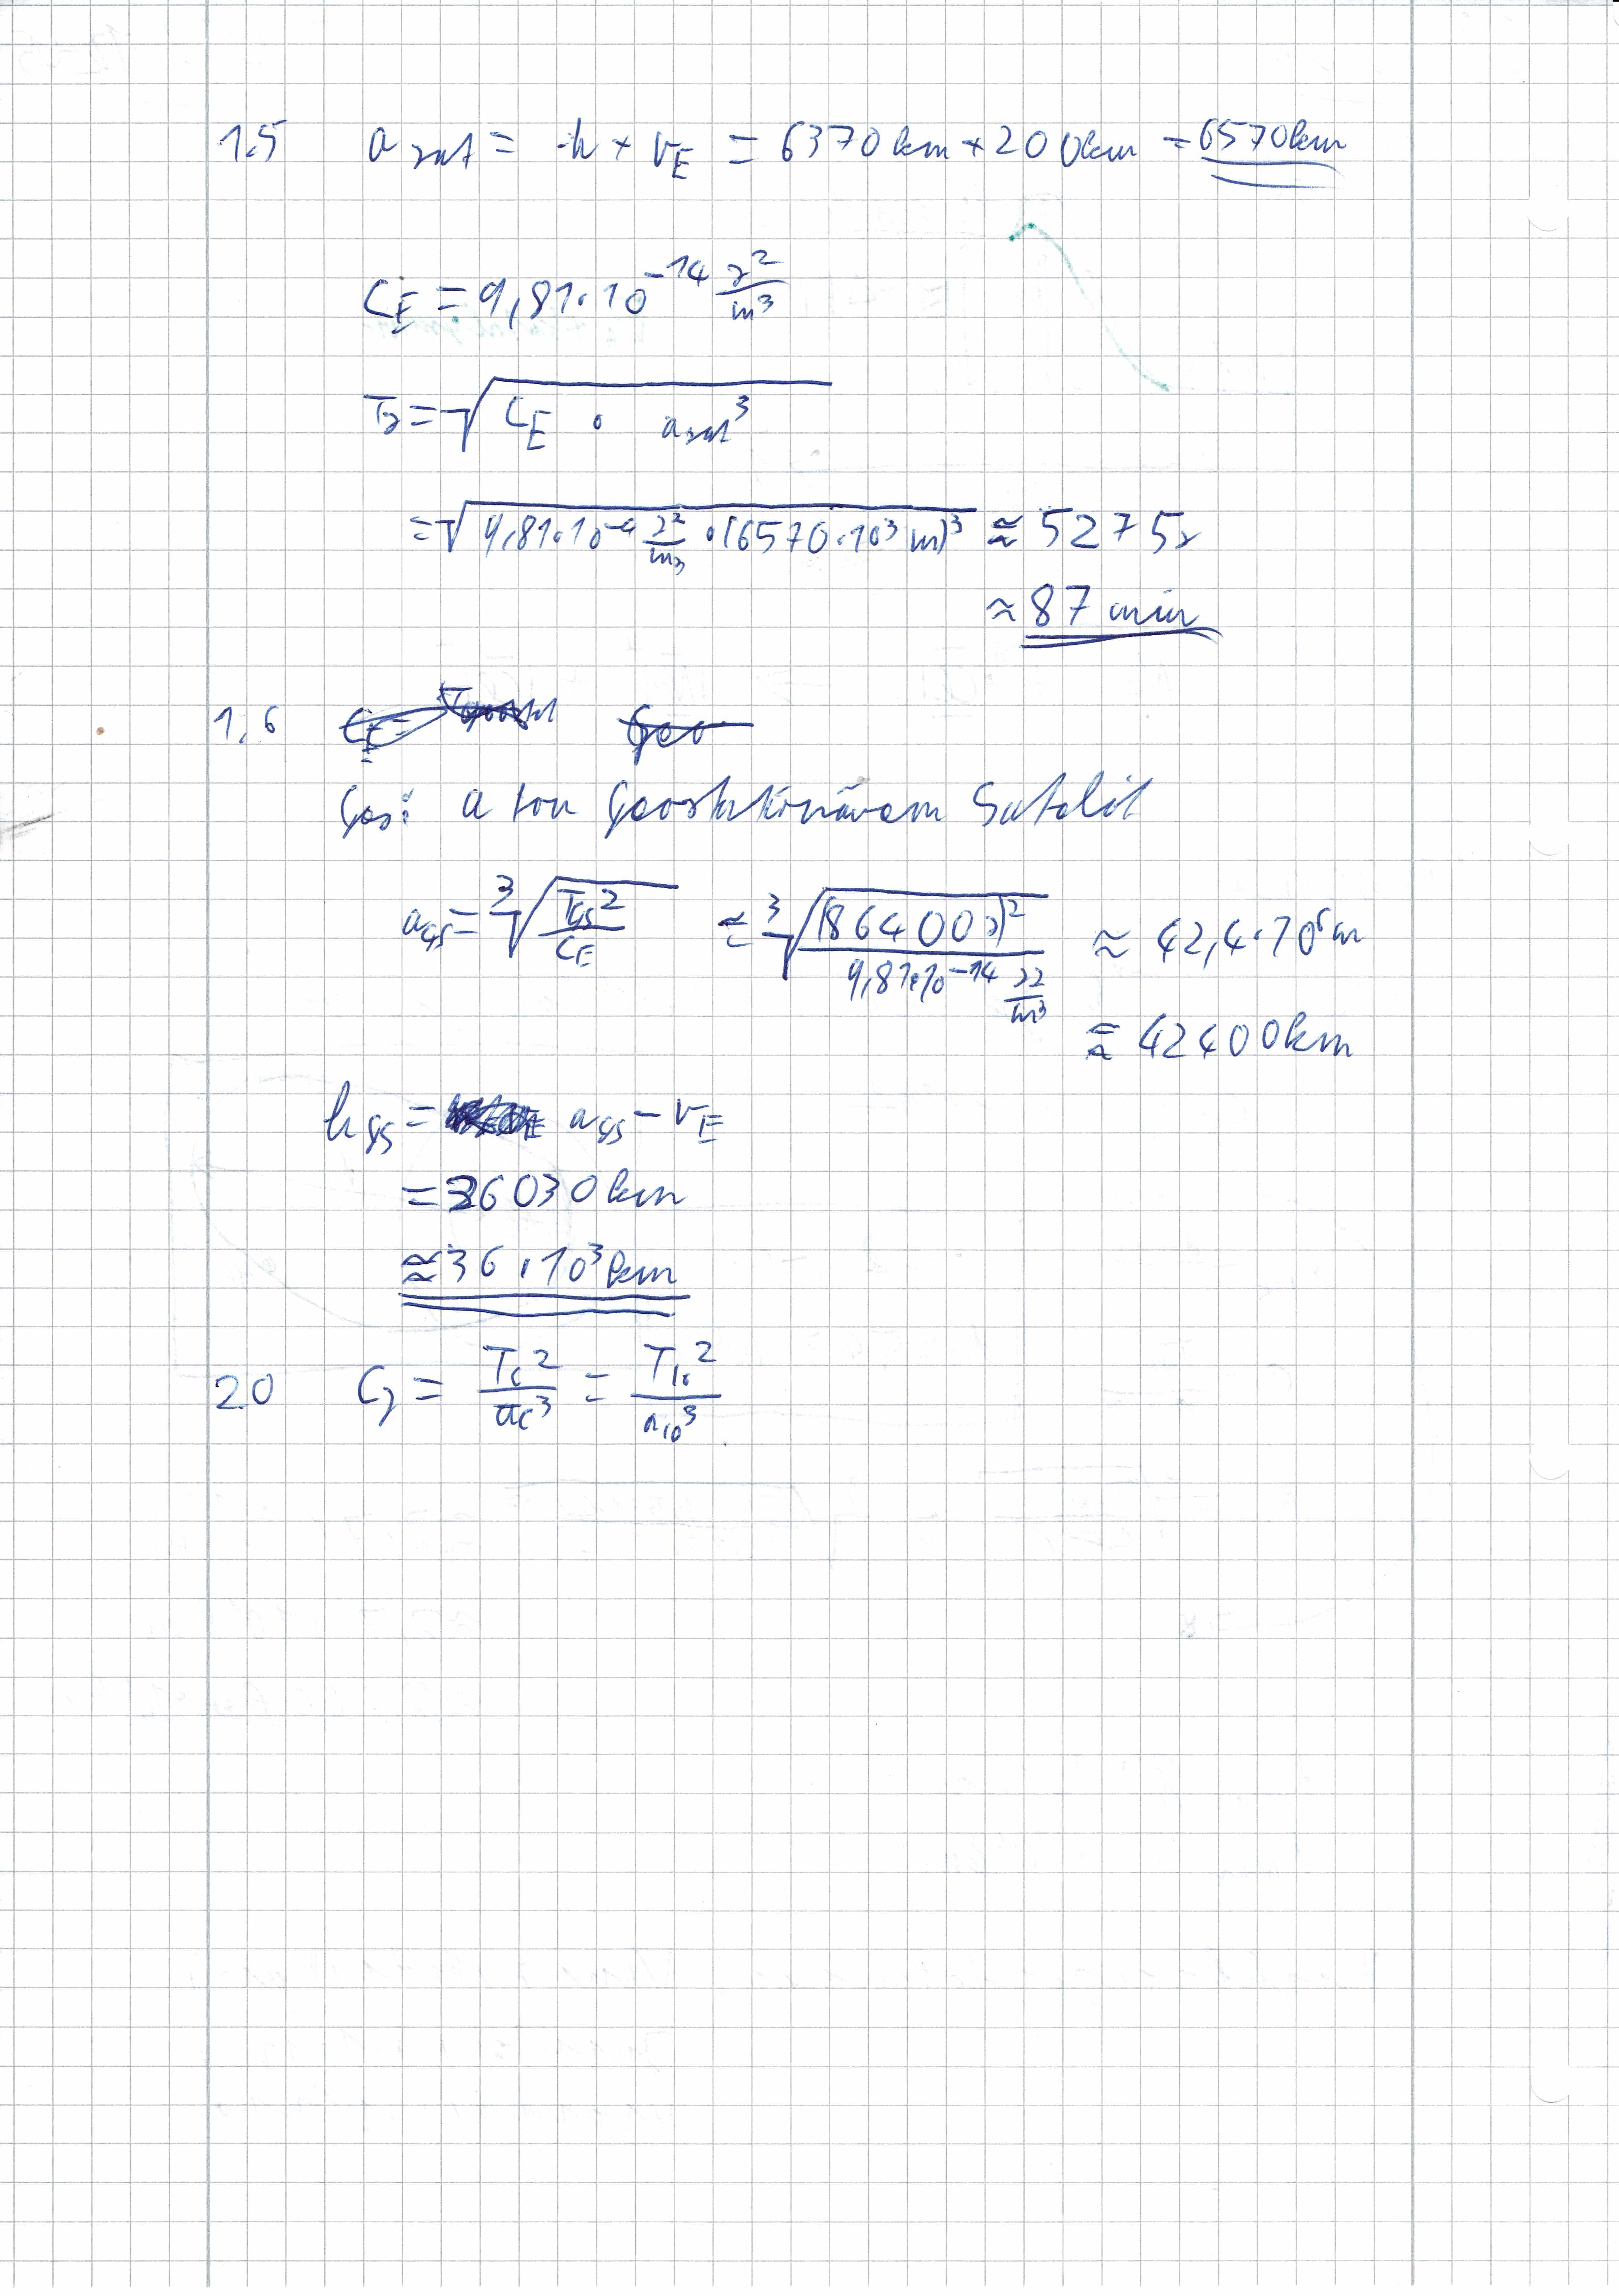 1.5 a_sat = h + r_E = 6370 km + 200 km = 6570 km
C_E = 9,81·10^-14 s²/m³
T_s = √(C_E · a_sat³)
= √(9,81·10^-14 s²/m³ · (6570·10³ m)³) ≈ 5275 s
≈ 87 min
1.6
Ges: a von Geostationärem Satelit
a_GS = ³√(T_GS²/C_E) ≈ ³√((86400 s)²/(9,81·10^-14 s²/m³)) ≈ 42,4·10⁶ m
≈ 42400 km
h_GS = a_GS - r_E
= 36030 km
≈ 36·10³ km
2.0 C_J = T_C²/a_C³ = T_Io²/a_Io³